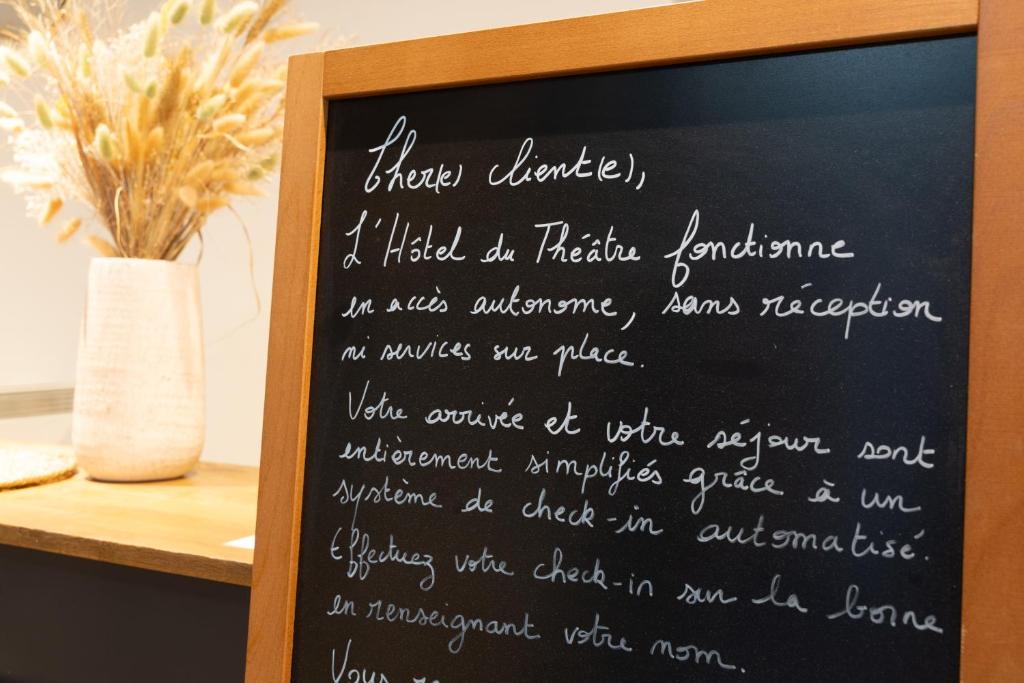 Cher(e) client(e),
L'Hôtel du Théâtre fonctionne
en accès autonome, sans réception
ni services sur place.
Votre arrivée et votre séjour sont
entièrement simplifiés grâce à un
système de check-in automatisé.
Effectuez votre check-in sur la borne
en renseignant votre nom.
Vous